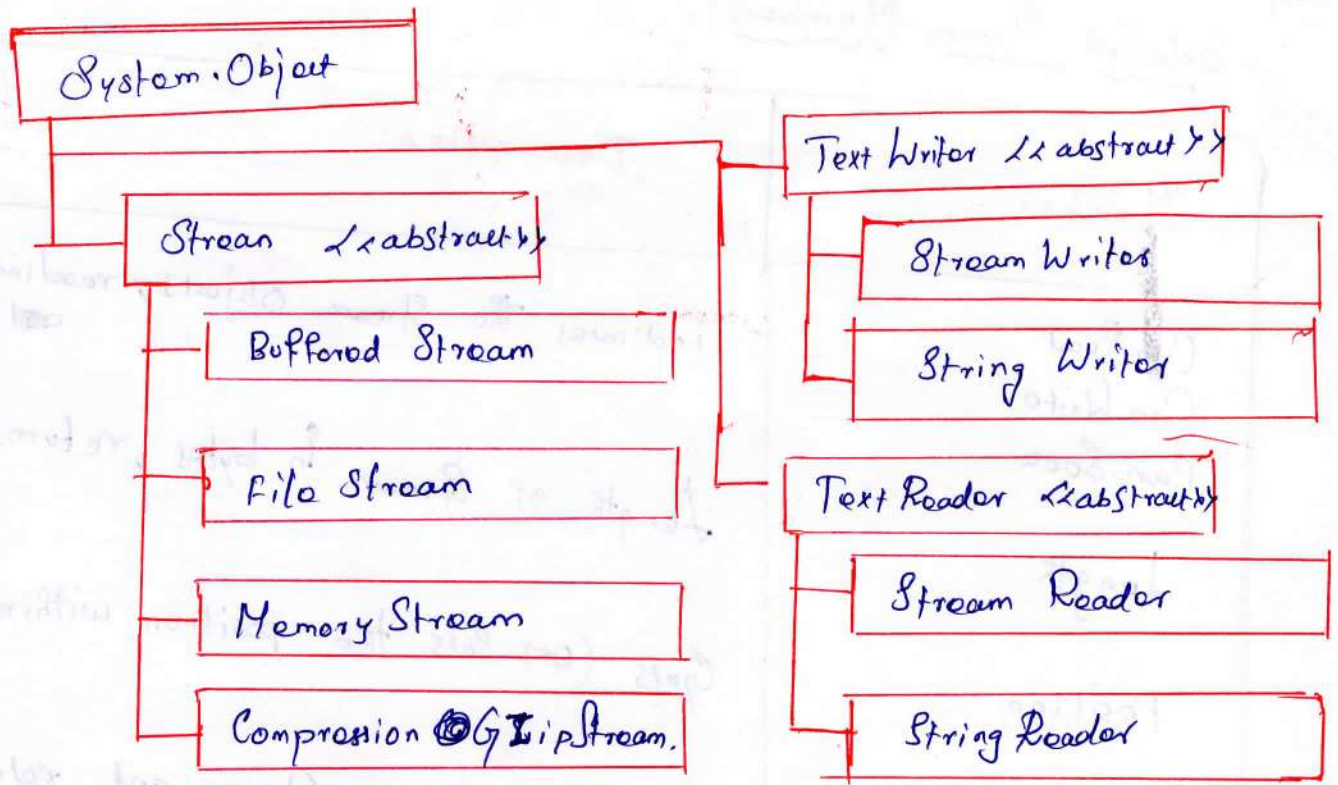 System.Object
Stream <<abstract>>
Buffered Stream
File Stream
Memory Stream
Compression GZipStream.
Text Writer <<abstract>>
Stream Writer
String Writer
Text Reader <<abstract>>
Stream Reader
String Reader